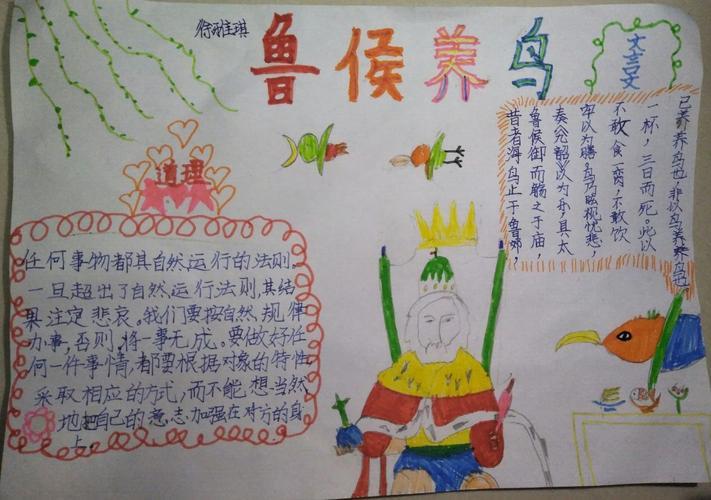 徐雅琪
鲁候养鸟
文言文
昔者海鸟止于鲁郊,
鲁候御而觞之于庙,
奏九韶以为乐,具太
牢以为膳。鸟乃眩视忧悲,
不敢食一脔,不敢饮
一杯,三日而死。此以
己养养鸟也,非以鸟养养鸟也。
道理
任何事物都具自然运行的法则。
一旦超出了自然运行法则,其结
果注定悲哀。我们要按自然规律
办事,否则,将一事无成。要做好任
何一件事情,都要根据对象的特性
采取相应的方式,而不能想当然
地把自己的意志加强在对方的身
上